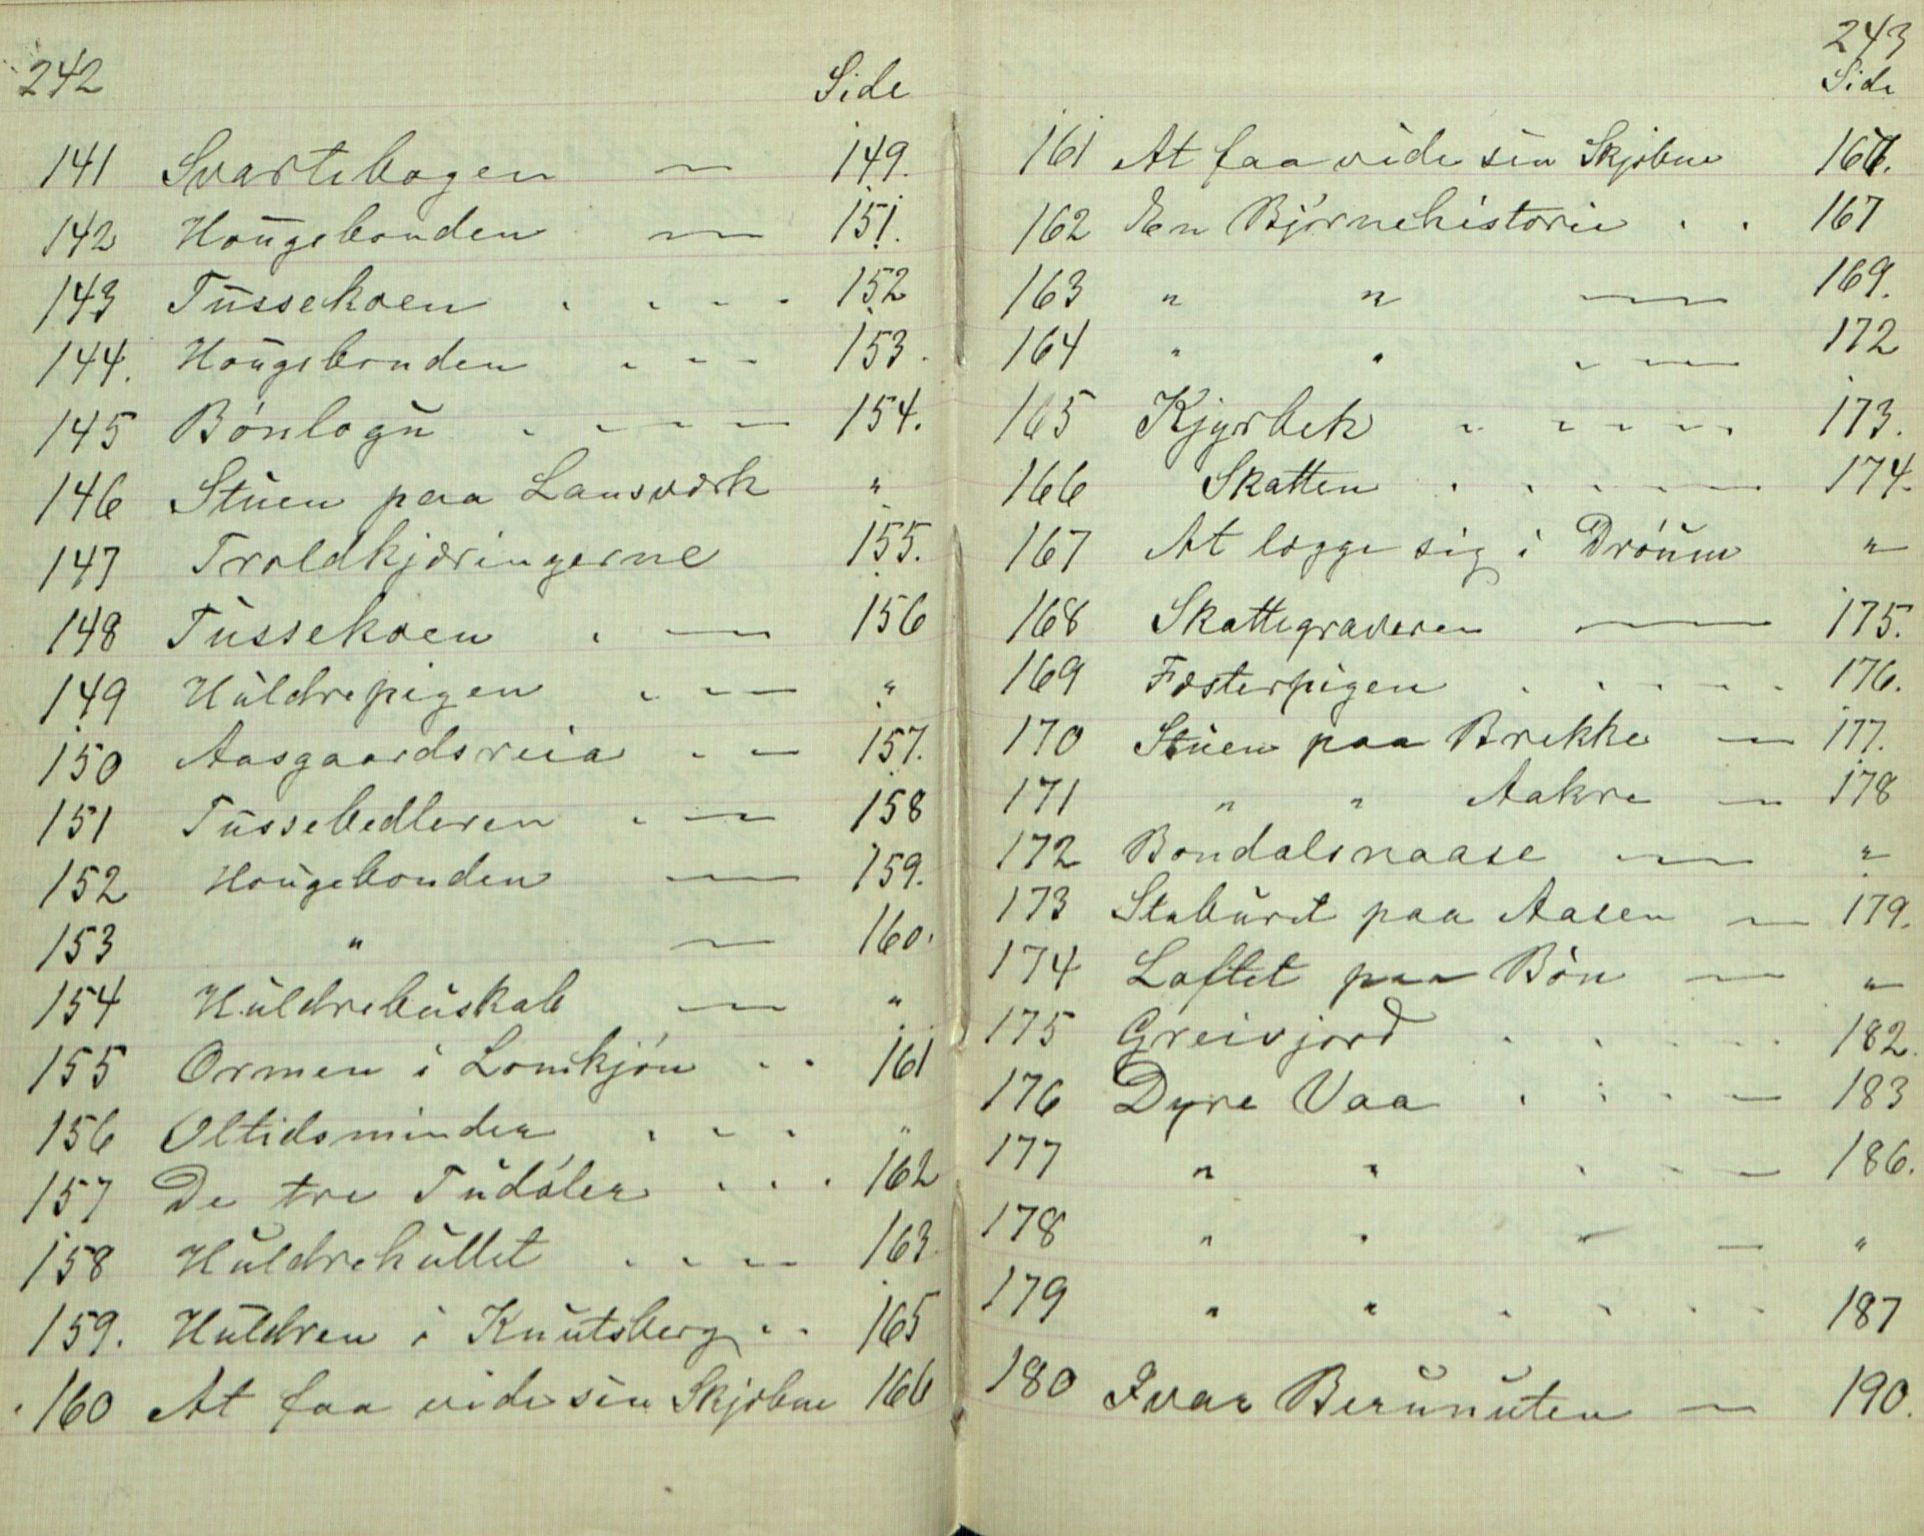 242
Side
141 Svartebogen — 149.
142 Hougebonden — 151.
143 Tussekoen . . . . 152
144. Hougebonden . . . 153.
145 Bönlogn . . . . 154.
146 Stuen paa Lansværk "
147 Troldkjæringerne 155.
148 Tussekoen . — 156
149 Huldrepigen . . — "
150 Aasgaardsreia . . — 157.
151 Tussebedleren . — 158
152 Hougebonden — 159.
153 " — 160.
154 Huldrebuskab — "
155 Ormen i Lomkjön . . 161
156 Oltidsminder . . . "
157 De tre Tudöler . . . 162
158 Huldrehullet . . . . 163.
159. Huldren i Knutsberg . . 165
160 At faa vide sin Skjæbne 166
243
Side
161 At faa vide sin Skjæbne 166.
162 En Björnehistorie . . 167
163 " " — 169.
164 " " . — 172
165 Kjyrbek . . . . . 173.
166 Skatten . . . . . 174.
167 At lægge sig i Dröum "
168 Skattegraveren — 175.
169 Fæsterpigen . . . . . 176.
170 Stuen paa Brekke — 177.
171 " " Aakre — 178
172 Bondalsnaase — "
173 Staburet paa Aasen — 179.
174 Loftet paa Bön — "
175 Greivjord . . . . . 182.
176 Dyre Vaa . . . — 183
177 " " . . — 186.
178 " " " — "
179 " " . . . . 187
180 Ivar Berunuten — 190.